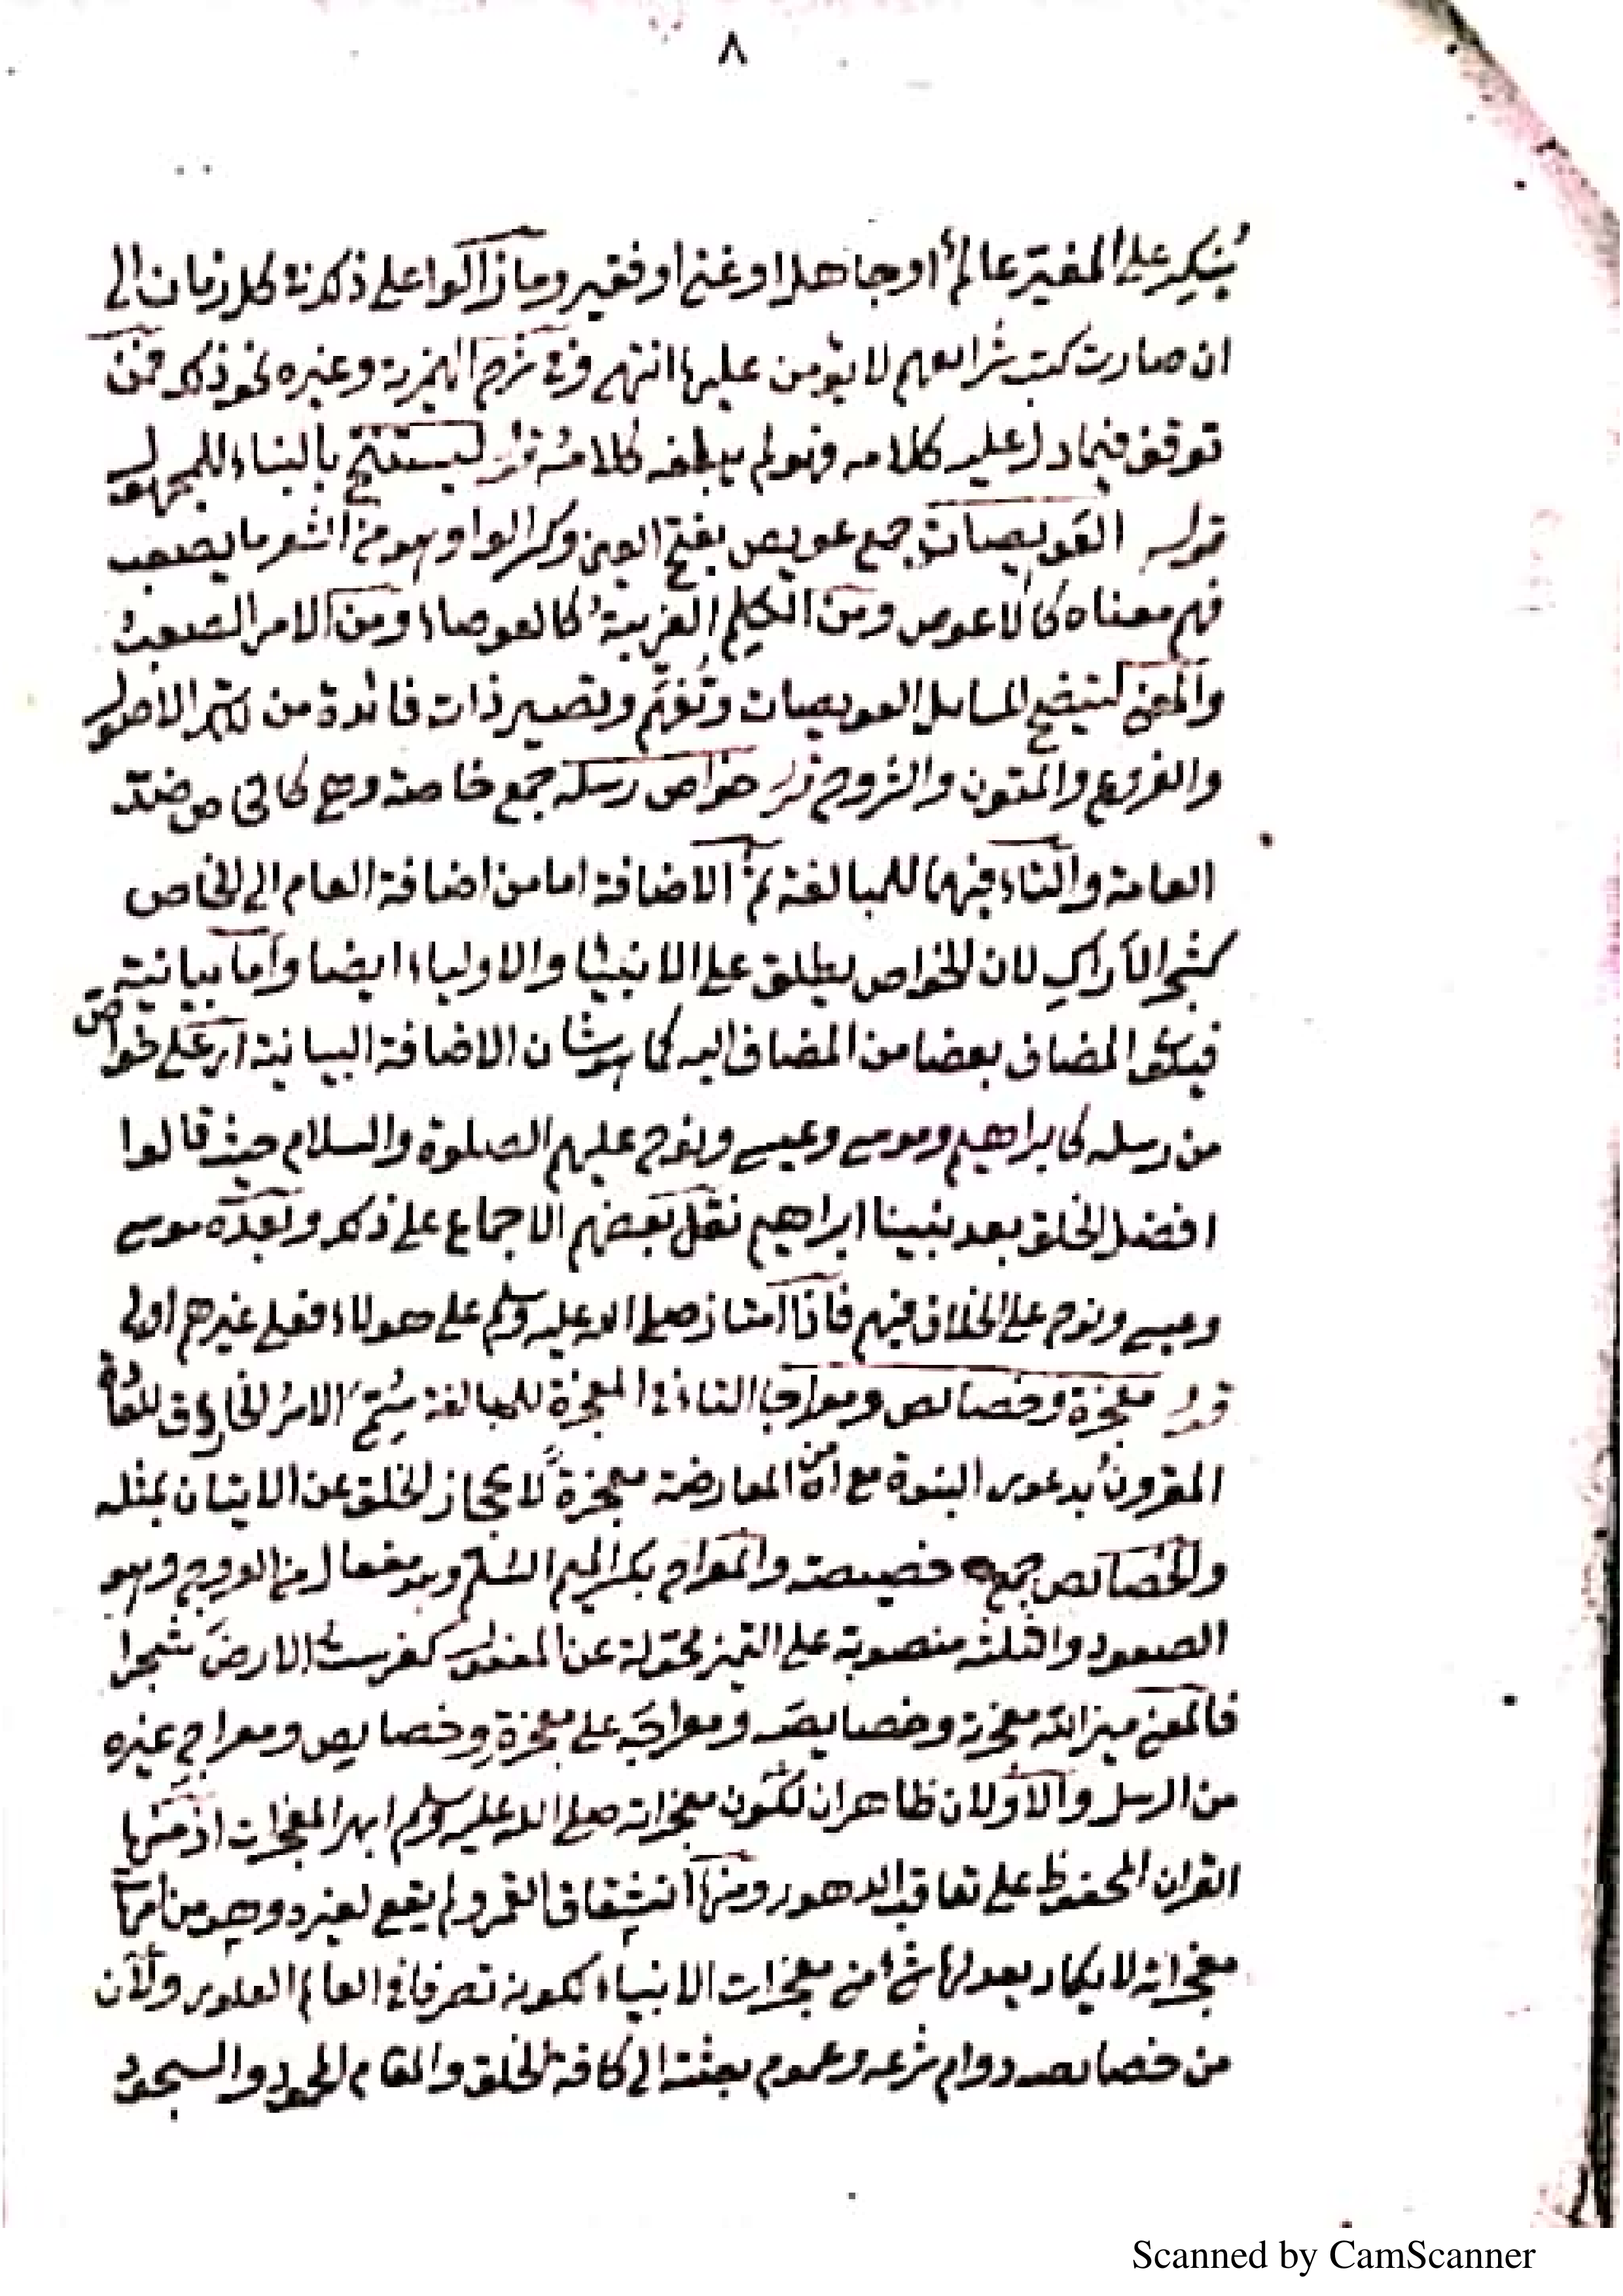 ٨
يُنكِر على المغيّر عالمٌ او جاهلا او غنى او فقير وما زالوا على ذلك فى كل زمان الى
ان صارت كتب شرائعهم لا يؤمن عليها انتهى وفى شرح الهمزية وغيره نحو ذلك فمن
توقف فيما دل عليه كلامه فهو لم يبلغه كلامُه قوله ليستفتح بالبناء للمجهول
قوله العَويصات جمع عويص بفتح العين وكسر الواو وهو من الشعر ما يصعب
فهم معناه كالاعوص ومن الكلِم الغريبةُ كالعوصاء ومن الامر الصعبُ
والمعنى لتتضح المسايل العويصات وتُفهَم وتصير ذات فائدة من الاصول
والفروع والمتون والشروح قوله خواص رسله جمع خاصة وهى كما فى ص ضد
العامة والتاء فيهما للمبالغة ثم الاضافة اما من اضافة العام الى الخاص
كشجر الاَراكِ لان الخواص يطلق على الانبيا والاولياء ايضا واما بيانية
فيكون المضاف بعضا من المضاف اليه كما هو شان الاضافة البيانية اى على خواص
من رسله كابراهيم وموسى وعيسى ونوح عليهم الصلوة والسلام حيث قالوا
افضل الخلق بعد نبينا ابراهيم نقل بعضهم الاجماع على ذلك وبعده موسى
وعيسى ونوح على الخلاف فيهم فاذا امتاز صلى الله عليه وسلم على هولاء فعلى غيرهم اولى
قوله معجزة وخصائص ومعراجا التاء فى المعجزة للمبالغة سُمّى الامرُ الخارق للعادة
المقرونُ بدعوى النبوة مع امن المعارضة معجزةً لاعجاز الخلق عن الاتيان بمثله
والخصائص جمع خصيصة والمعراج بكسر الميم السلم وهو مفعال من العروج وهو
الصعود والثلثه منصوبة على التميز محوّلة عن المفعول كغرست الارضَ شجرا
فالمعنى ميز الله معجزته وخصايصَه ومعراجَه على معجزة وخصايص ومعراج غيره
من الرسل والاَوّلان ظاهران لكون معجزاته صلى الله عليه وسلم ابهر المعجزات اذ منها
القران المحفوظ على تعاقب الدهور ومنها انشقاق القمر ولم يقع لغيره وهو من امهات
معجزاته لا يكاد يعدلها شئ من معجزات الانبياء لكونه تصرفا فى العالم العلوى ولان
من خصايصه دوام شرعه وعموم بعثته الى كافة الخلق والمقام المحمود والسجود
Scanned by CamScanner